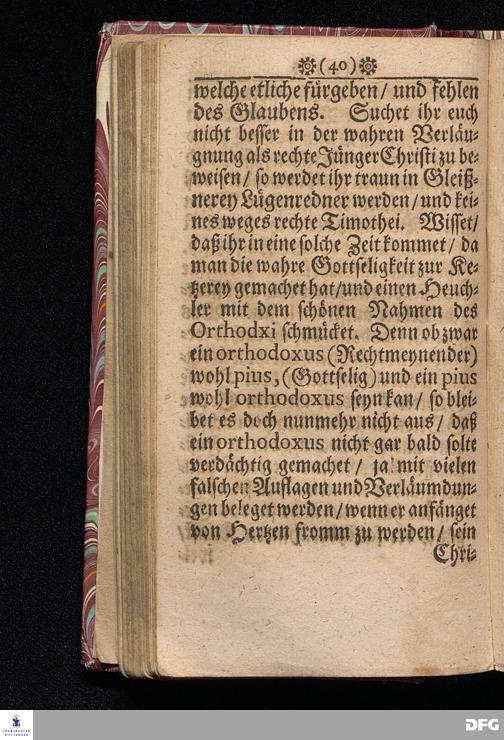 (40)
welche etliche fürgeben / und fehlen
des Glaubens. Suchet ihr euch
nicht besser in der wahren Verläu-
gnung als rechte Jünger Christi zu be-
weisen / so werdet ihr traun in Gleiß-
nerey Lügenredner werden / und kei-
nes weges rechte Timothei. Wisset /
daß ihr in eine solche Zeit kommet / da
man die wahre Gottseligkeit zur Ke-
tzerey gemachet hat / und einen Heuch-
ler mit dem schönen Nahmen des
Orthodxi schmücket. Denn ob zwar
ein orthodoxus (Rechtmeynender)
wohl pius, (Gottselig) und ein pius
wohl orthodoxus seyn kan / so blei-
bet es doch nunmehr nicht aus / daß
ein orthodoxus nicht gar bald solte
verdächtig gemachet / ja mit vielen
falschen Auflagen und Verläumdun-
gen beleget werden / wenn er anfänget
von Hertzen fromm zu werden / sein
Chri-
FRANCKESCHE
STIFTUNGEN
DFG